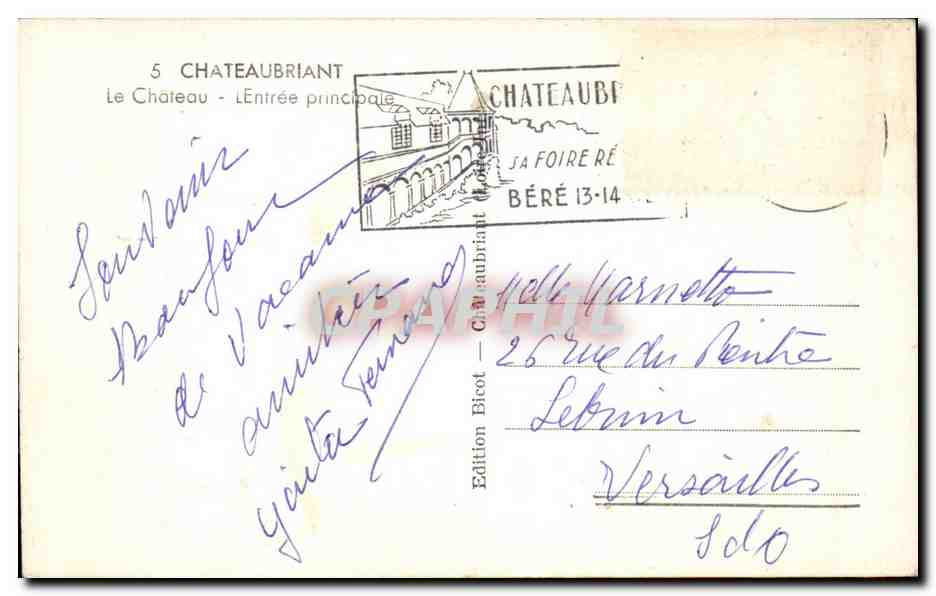 5 CHATEAUBRIANT
Le Château - LEntrée principale
CHATEAUBR
SA FOIRE RÉ
BÉRÉ 13-14
Souvenir
Bonjour
de Vacances
amitiés
Fernand
Edition Bicot — Châteaubriant
CRAPHIL
Melle
26 rue du Peintre
Lebrun
Versailles
S do